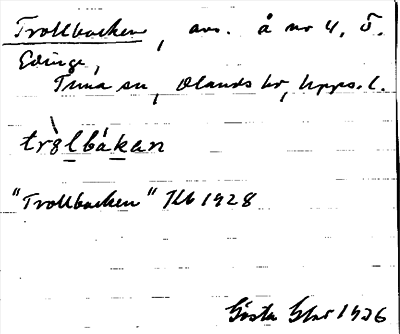 Trollbacken, avs. å nr 4, Ö.
Edinge,
Tuna sn, Olands hr, Upps. l.
tròlbákan
"Trollbacken" Jtb 1928
Gösta 1926